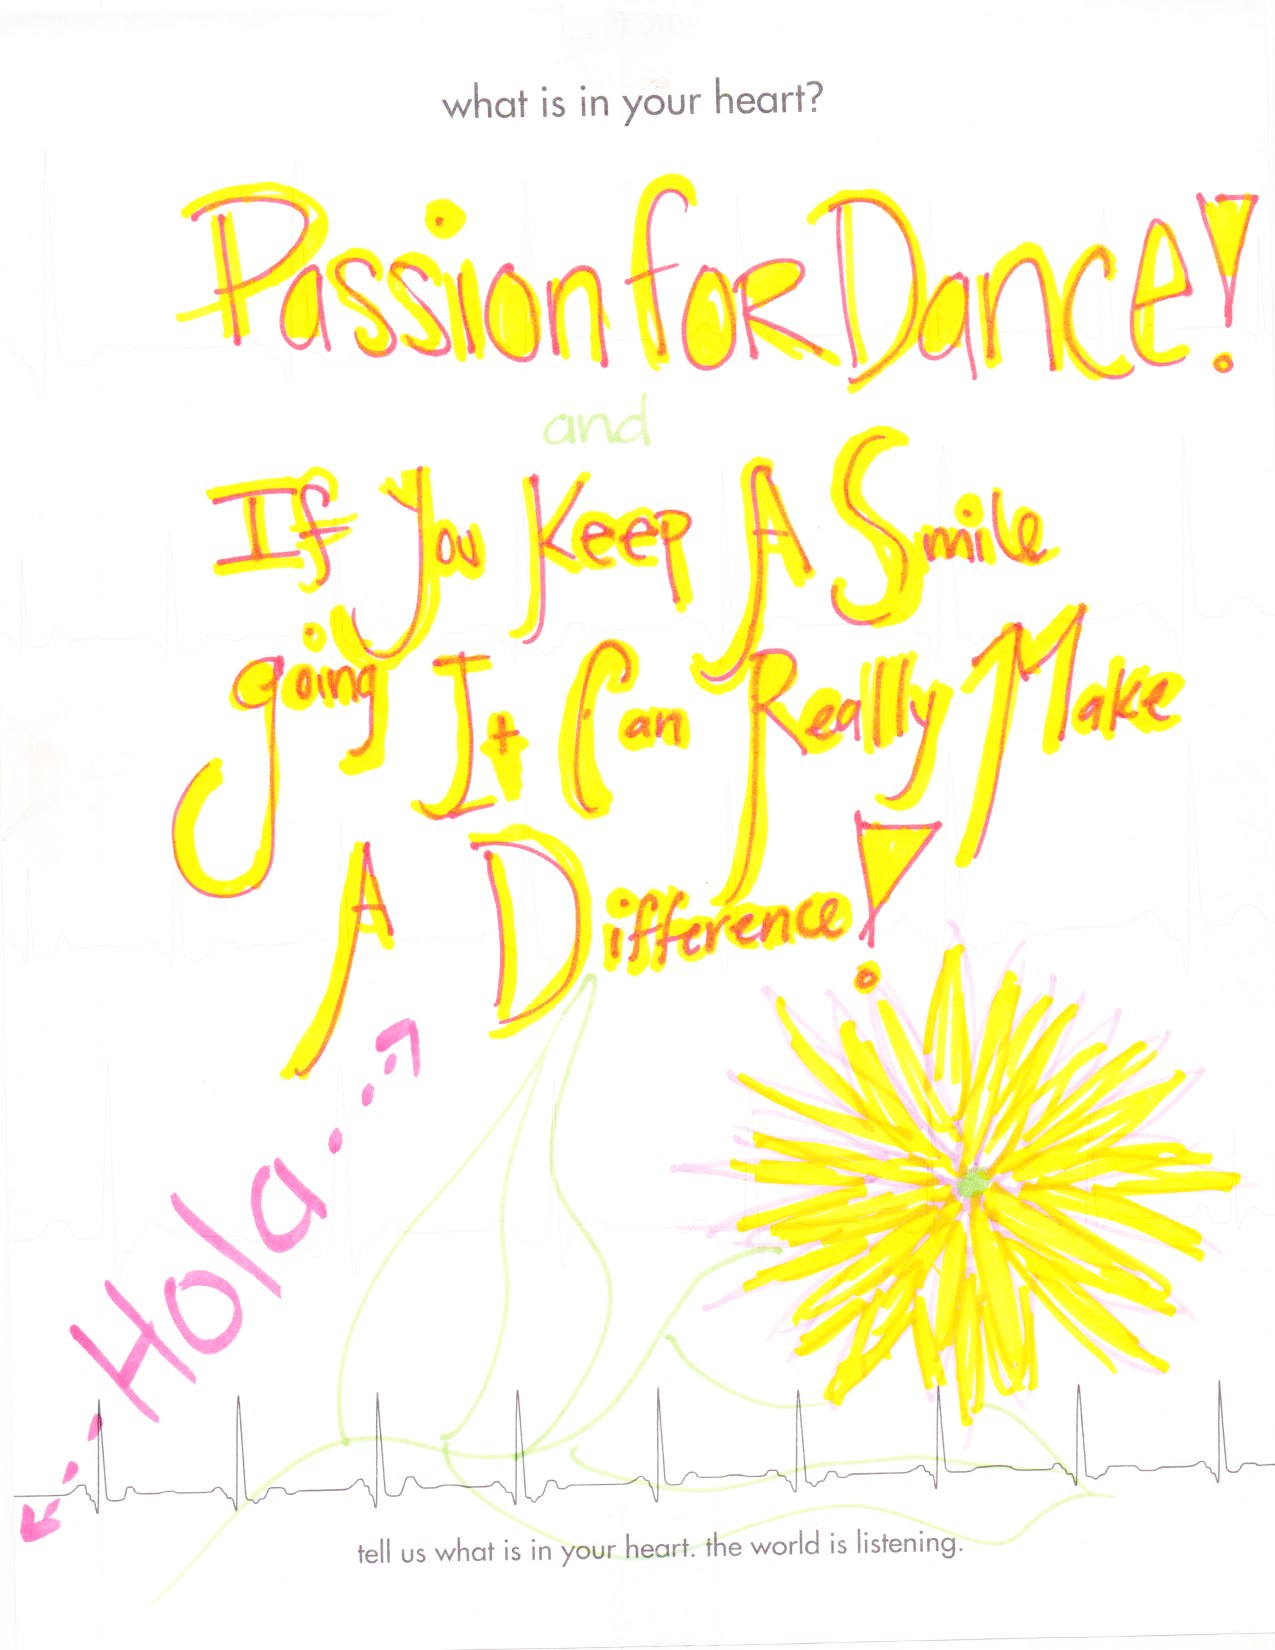 what is in your heart?
Passion for Dance!
and
If You Keep A Smile
going It Can Really Make
A Difference!
Hola
tell us what is in your heart. the world is listening.